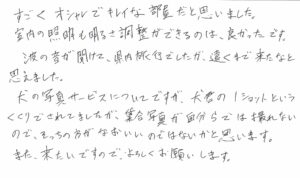 すごくオシャレでキレイなお部屋だと思いました。
室内の照明も明るさ調整ができるのは、良かったです。
波の音が聞けて、県内旅行でしたが、遠くまで来たなと
思えました。
犬の写真サービスについてですが、犬君の1ショットという
くくりでされてましたが、集合写真が自分らでは撮れない
ので、そっちの方がなおいいのではないかと思います。
また、来たいですので、よろしくお願いします。